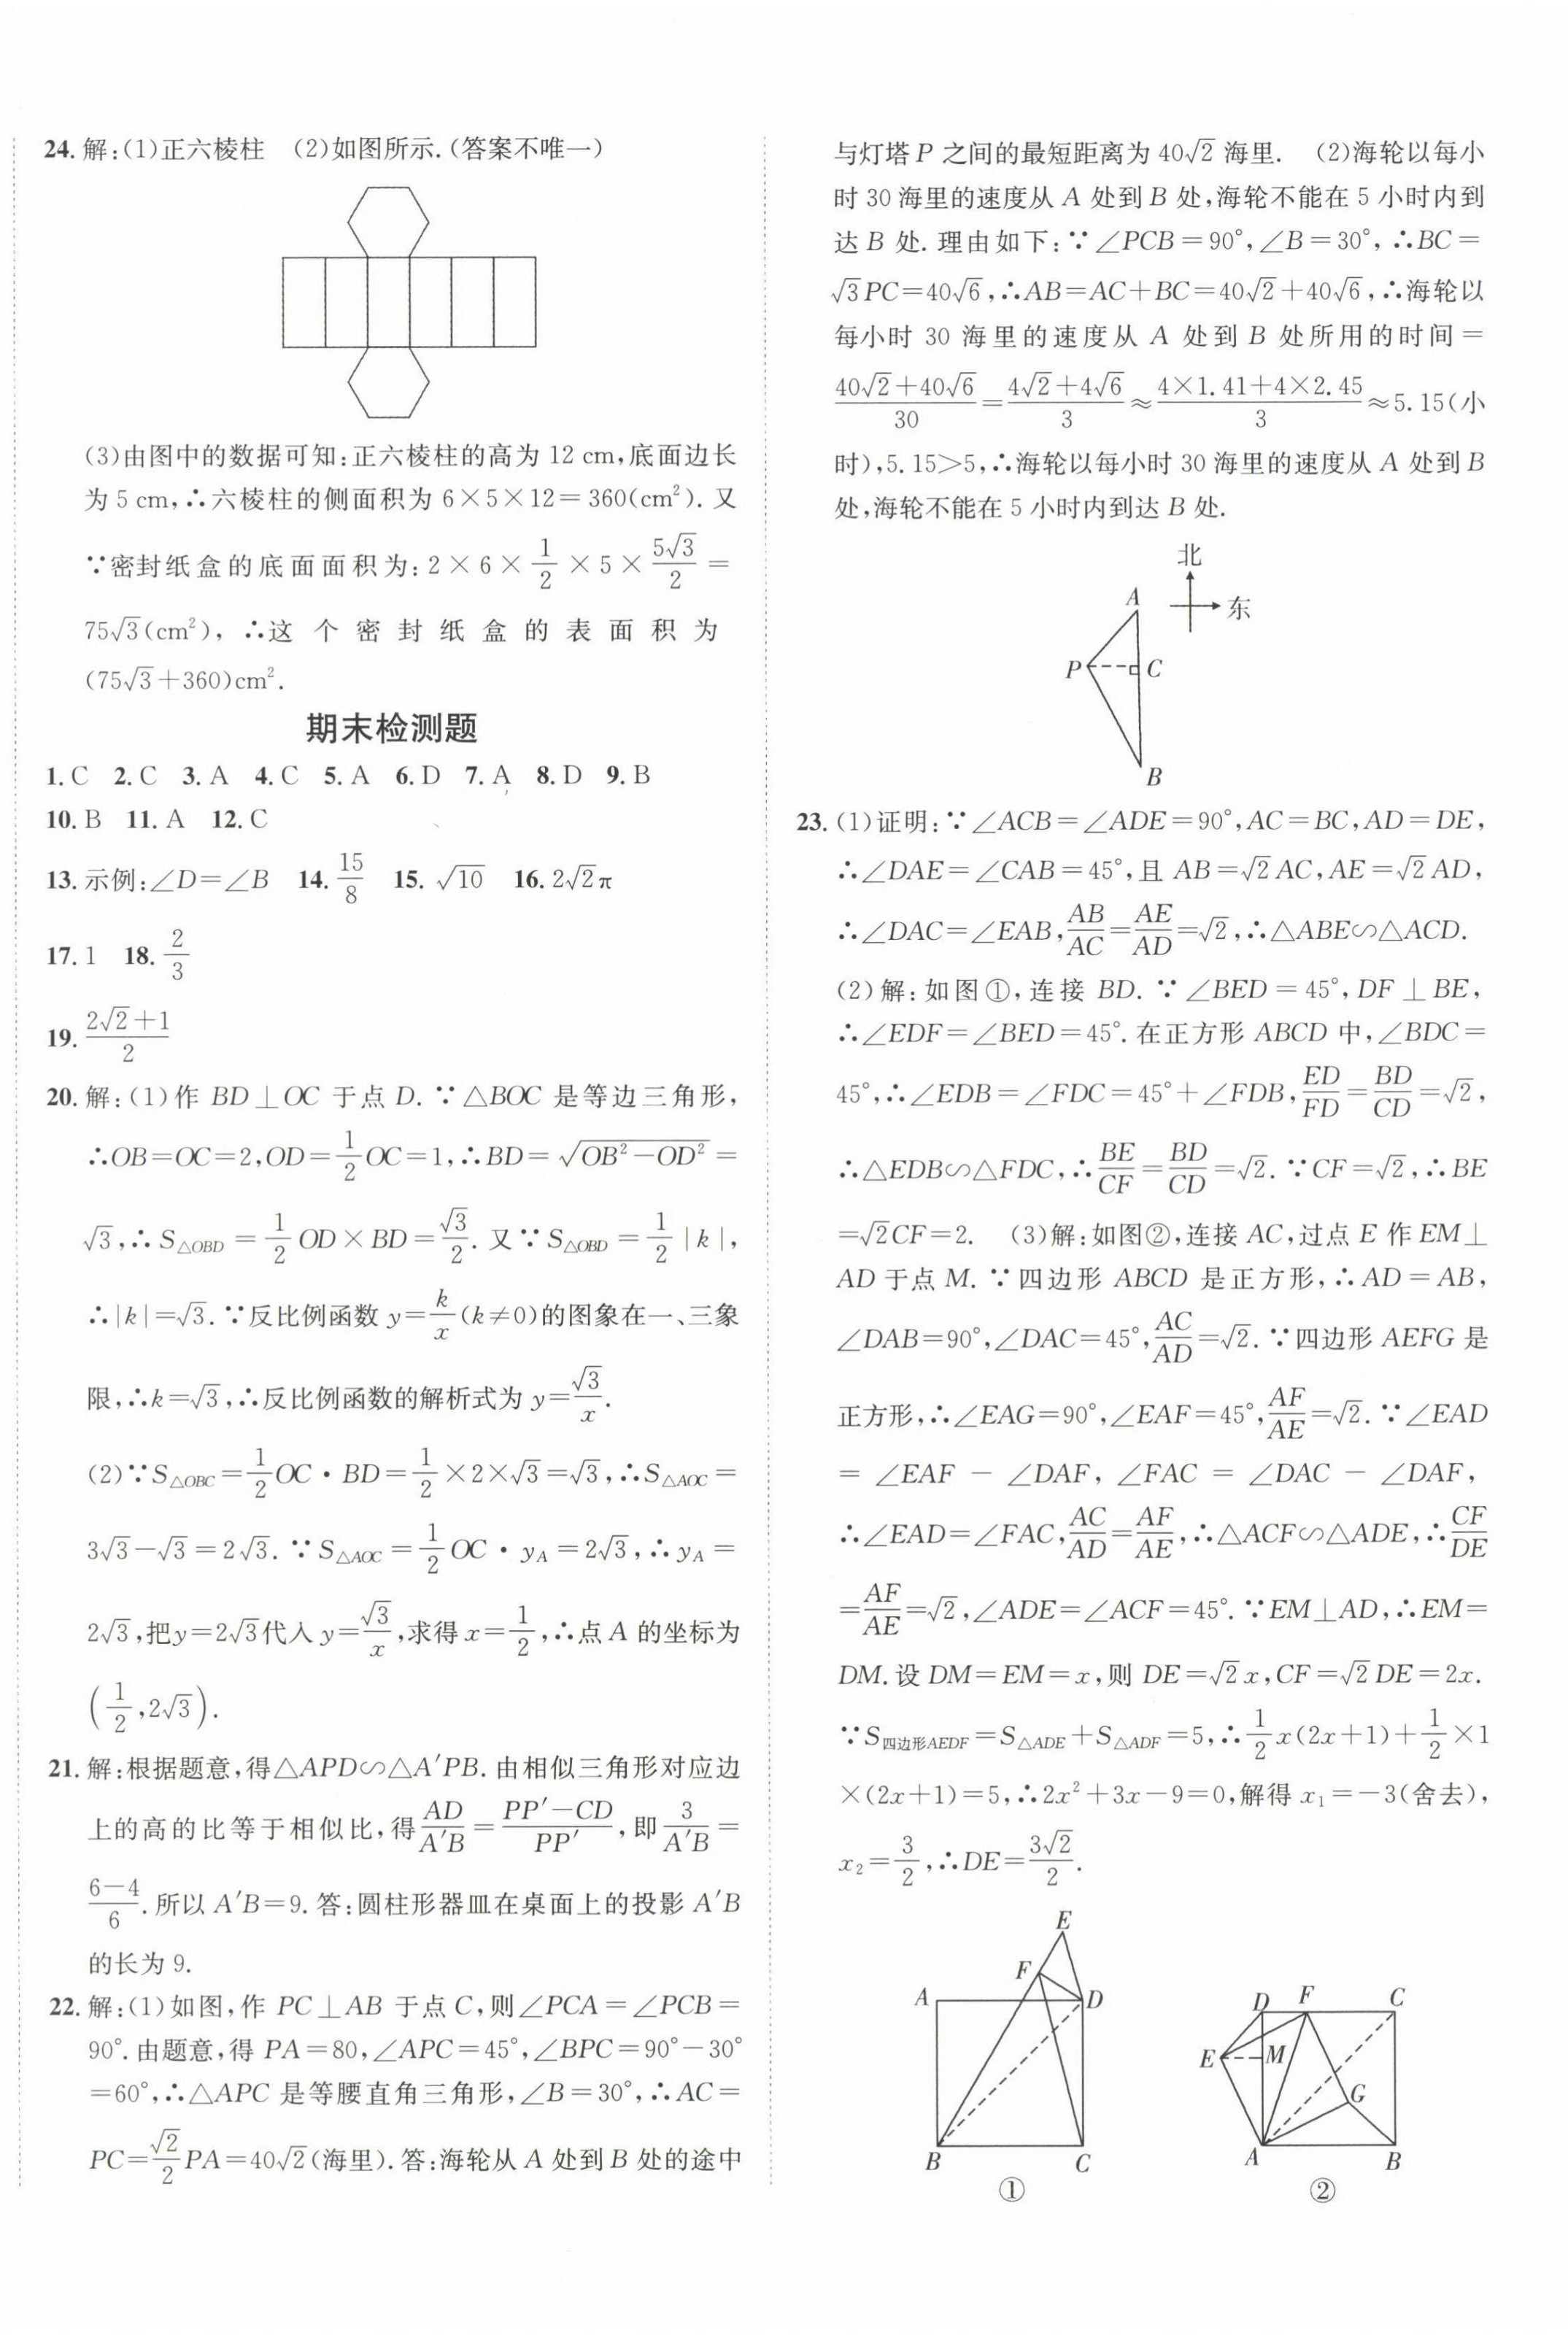 24. 解:(1)正六棱柱 (2)如图所示.(答案不唯一)
(3)由图中的数据可知:正六棱柱的高为 12 cm,底面边长
为 5 cm,∴六棱柱的侧面积为 6×5×12=360(cm²). 又
∵密封纸盒的底面面积为:2×6×1/2×5×5√3/2=
75√3(cm²), ∴这个密封纸盒的表面积为
(75√3+360)cm².
期末检测题
1. C 2. C 3. A 4. C 5. A 6. D 7. A 8. D 9. B
10. B 11. A 12. C
13. 示例:∠D=∠B 14. 15/8 15. √10 16. 2√2π
17. 1 18. 2/3
19. (2√2+1)/2
20. 解:(1)作 BD⊥OC 于点 D. ∵△BOC 是等边三角形,
∴OB=OC=2,OD=1/2OC=1,∴BD=√(OB²-OD²)=
√3,∴S△OBD=1/2OD×BD=√3/2. 又∵S△OBD=1/2|k|,
∴|k|=√3. ∵反比例函数 y=k/x(k≠0)的图象在一、三象
限,∴k=√3,∴反比例函数的解析式为 y=√3/x.
(2)∵S△OBC=1/2OC·BD=1/2×2×√3=√3,∴S△AOC=
3√3-√3=2√3. ∵S△AOC=1/2OC·yA=2√3,∴yA=
2√3,把y=2√3代入 y=√3/x,求得 x=1/2,∴点 A 的坐标为
(1/2,2√3).
21. 解:根据题意,得△APD∽△A′PB. 由相似三角形对应边
上的高的比等于相似比,得AD/A′B=(PP′-CD)/PP′,即3/A′B=
(6-4)/6. 所以 A′B=9. 答:圆柱形器皿在桌面上的投影 A′B
的长为 9.
22. 解:(1)如图,作 PC⊥AB 于点 C,则∠PCA=∠PCB=
90°. 由题意,得 PA=80,∠APC=45°,∠BPC=90°-30°
=60°,∴△APC 是等腰直角三角形,∠B=30°,∴AC=
PC=√2/2PA=40√2(海里). 答:海轮从 A 处到 B 处的途中
与灯塔 P 之间的最短距离为 40√2 海里. (2)海轮以每小
时 30 海里的速度从 A 处到 B 处,海轮不能在 5 小时内到
达 B 处. 理由如下:∵∠PCB=90°,∠B=30°,∴BC=
√3PC=40√6,∴AB=AC+BC=40√2+40√6,∴海轮以
每小时 30 海里的速度从 A 处到 B 处所用的时间=
(40√2+40√6)/30=(4√2+4√6)/3≈(4×1.41+4×2.45)/3≈5.15(小
时),5.15>5,∴海轮以每小时 30 海里的速度从 A 处到 B
处,海轮不能在 5 小时内到达 B 处.
北
东
A
P
C
B
23. (1)证明:∵∠ACB=∠ADE=90°,AC=BC,AD=DE,
∴∠DAE=∠CAB=45°,且 AB=√2AC,AE=√2AD,
∴∠DAC=∠EAB,AB/AC=AE/AD=√2,∴△ABE∽△ACD.
(2)解:如图①,连接 BD. ∵∠BED=45°,DF⊥BE,
∴∠EDF=∠BED=45°. 在正方形 ABCD 中,∠BDC=
45°,∴∠EDB=∠FDC=45°+∠FDB,ED/FD=BD/CD=√2,
∴△EDB∽△FDC,∴BE/CF=BD/CD=√2. ∵CF=√2,∴BE
=√2CF=2. (3)解:如图②,连接 AC,过点 E 作 EM⊥
AD 于点 M. ∵四边形 ABCD 是正方形,∴AD=AB,
∠DAB=90°,∠DAC=45°,AC/AD=√2. ∵四边形 AEFG 是
正方形,∴∠EAG=90°,∠EAF=45°,AF/AE=√2. ∵∠EAD
=∠EAF-∠DAF,∠FAC=∠DAC-∠DAF,
∴∠EAD=∠FAC,AC/AD=AF/AE,∴△ACF∽△ADE,∴CF/DE
=AF/AE=√2,∠ADE=∠ACF=45°. ∵EM⊥AD,∴EM=
DM. 设 DM=EM=x,则 DE=√2x,CF=√2DE=2x.
∵S四边形AEDF=S△ADE+S△ADF=5,∴1/2x(2x+1)+1/2×1
×(2x+1)=5,∴2x²+3x-9=0,解得 x₁=-3(舍去),
x₂=3/2,∴DE=3√2/2.
E
F
A
D
B
C
①
D
F
C
E
M
G
A
B
②